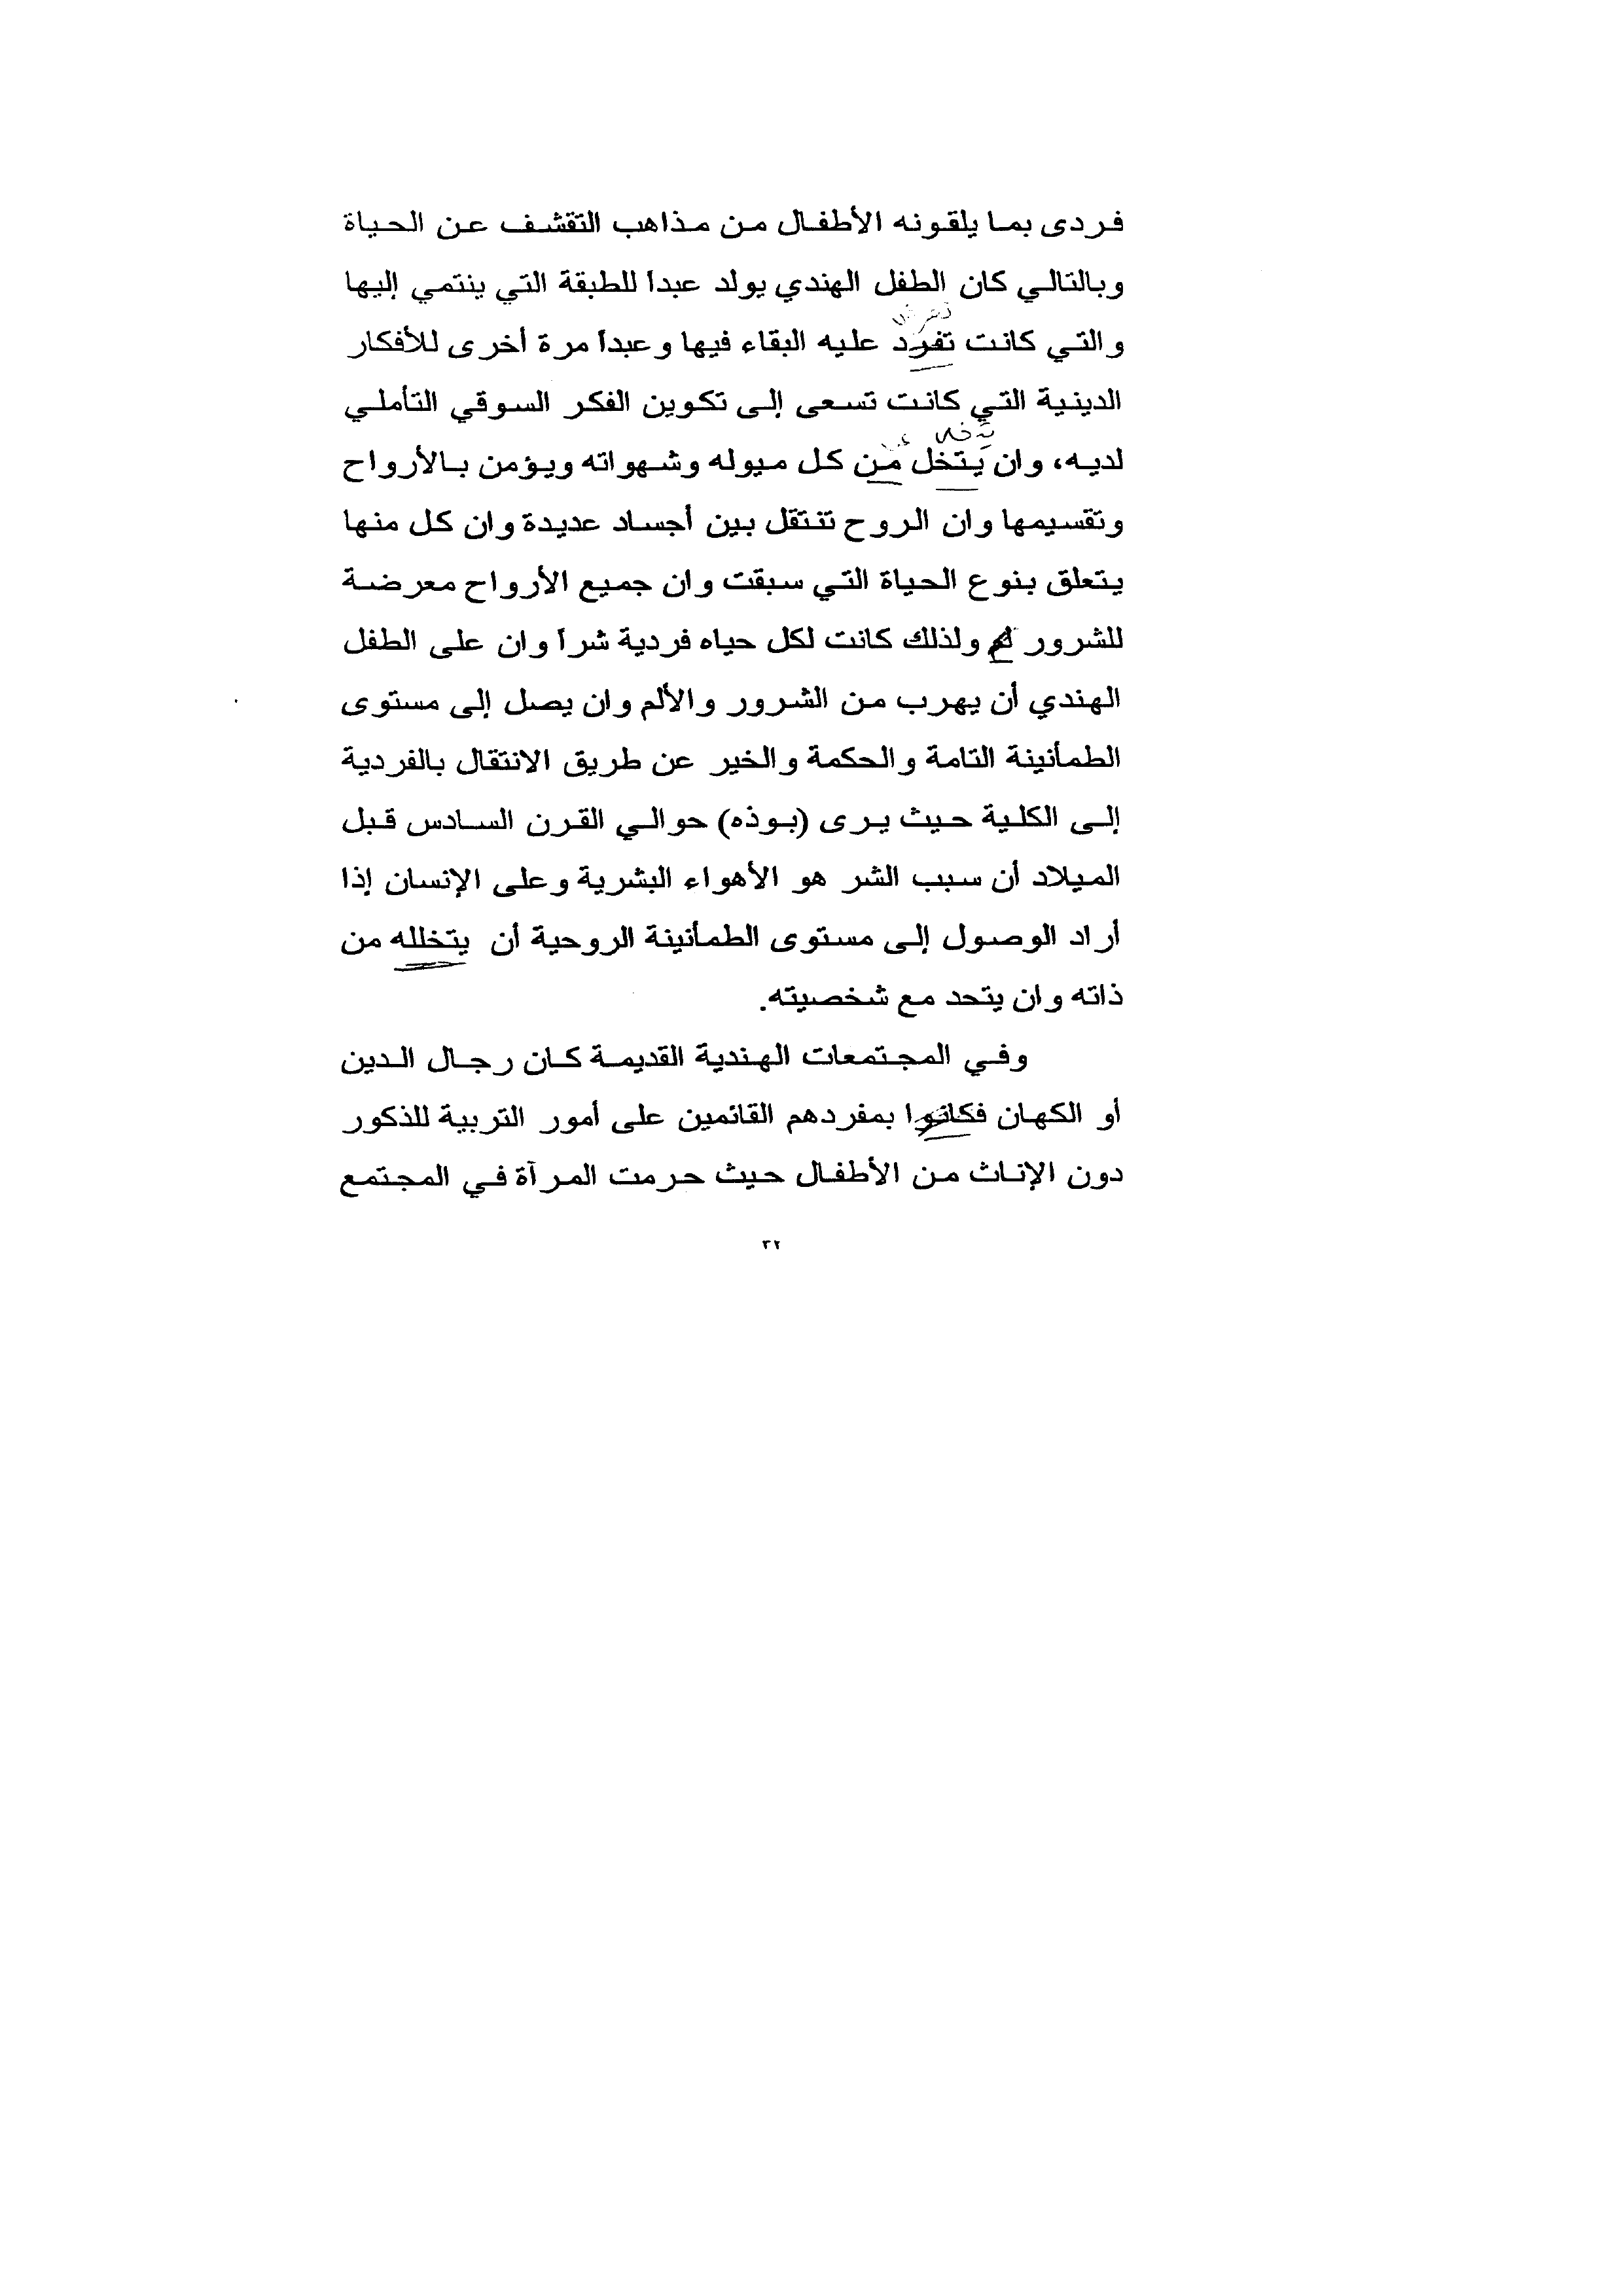 فردى بما يلقونه الأطفال من مذاهب التقشف عن الحياة
وبالتالي كان الطفل الهندي يولد عبداً للطبقة التي ينتمي إليها
والتي كانت تفرد عليه البقاء فيها وعبداً مرة أخرى للأفكار
الدينية التي كانت تسعى إلى تكوين الفكر السوقي التأملي
لديه، وان يتخل من كل ميوله وشهواته ويؤمن بالأرواح
وتقسيمها وان الروح تنتقل بين أجساد عديدة وان كل منها
يتعلق بنوع الحياة التي سبقت وان جميع الأرواح معرضة
للشرور ولذلك كانت لكل حياه فردية شراً وان على الطفل
الهندي أن يهرب من الشرور والألم وان يصل إلى مستوى
الطمأنينة التامة والحكمة والخير عن طريق الانتقال بالفردية
إلى الكلية حيث يرى (بوذه) حوالي القرن السادس قبل
الميلاد أن سبب الشر هو الأهواء البشرية وعلى الإنسان إذا
أراد الوصول إلى مستوى الطمأنينة الروحية أن يتخلله من
ذاته وان يتحد مع شخصيته.
وفي المجتمعات الهندية القديمة كان رجال الدين
أو الكهان فكانوا بمفردهم القائمين على أمور التربية للذكور
دون الإناث من الأطفال حيث حرمت المرآة في المجتمع
٣٢